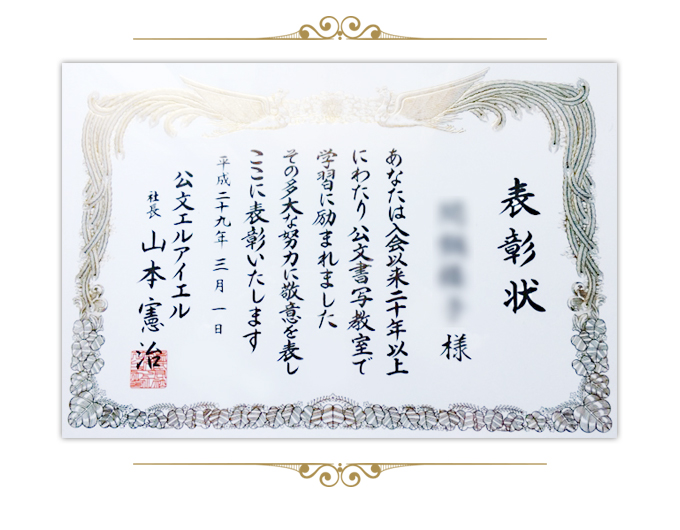 表彰状
様
あなたは入会以来二十年以上
にわたり公文書写教室で
学習に励まれました
その多大な努力に敬意を表し
ここに表彰いたします
平成二十九年三月一日
公文エルアイエル
社長 山本憲治